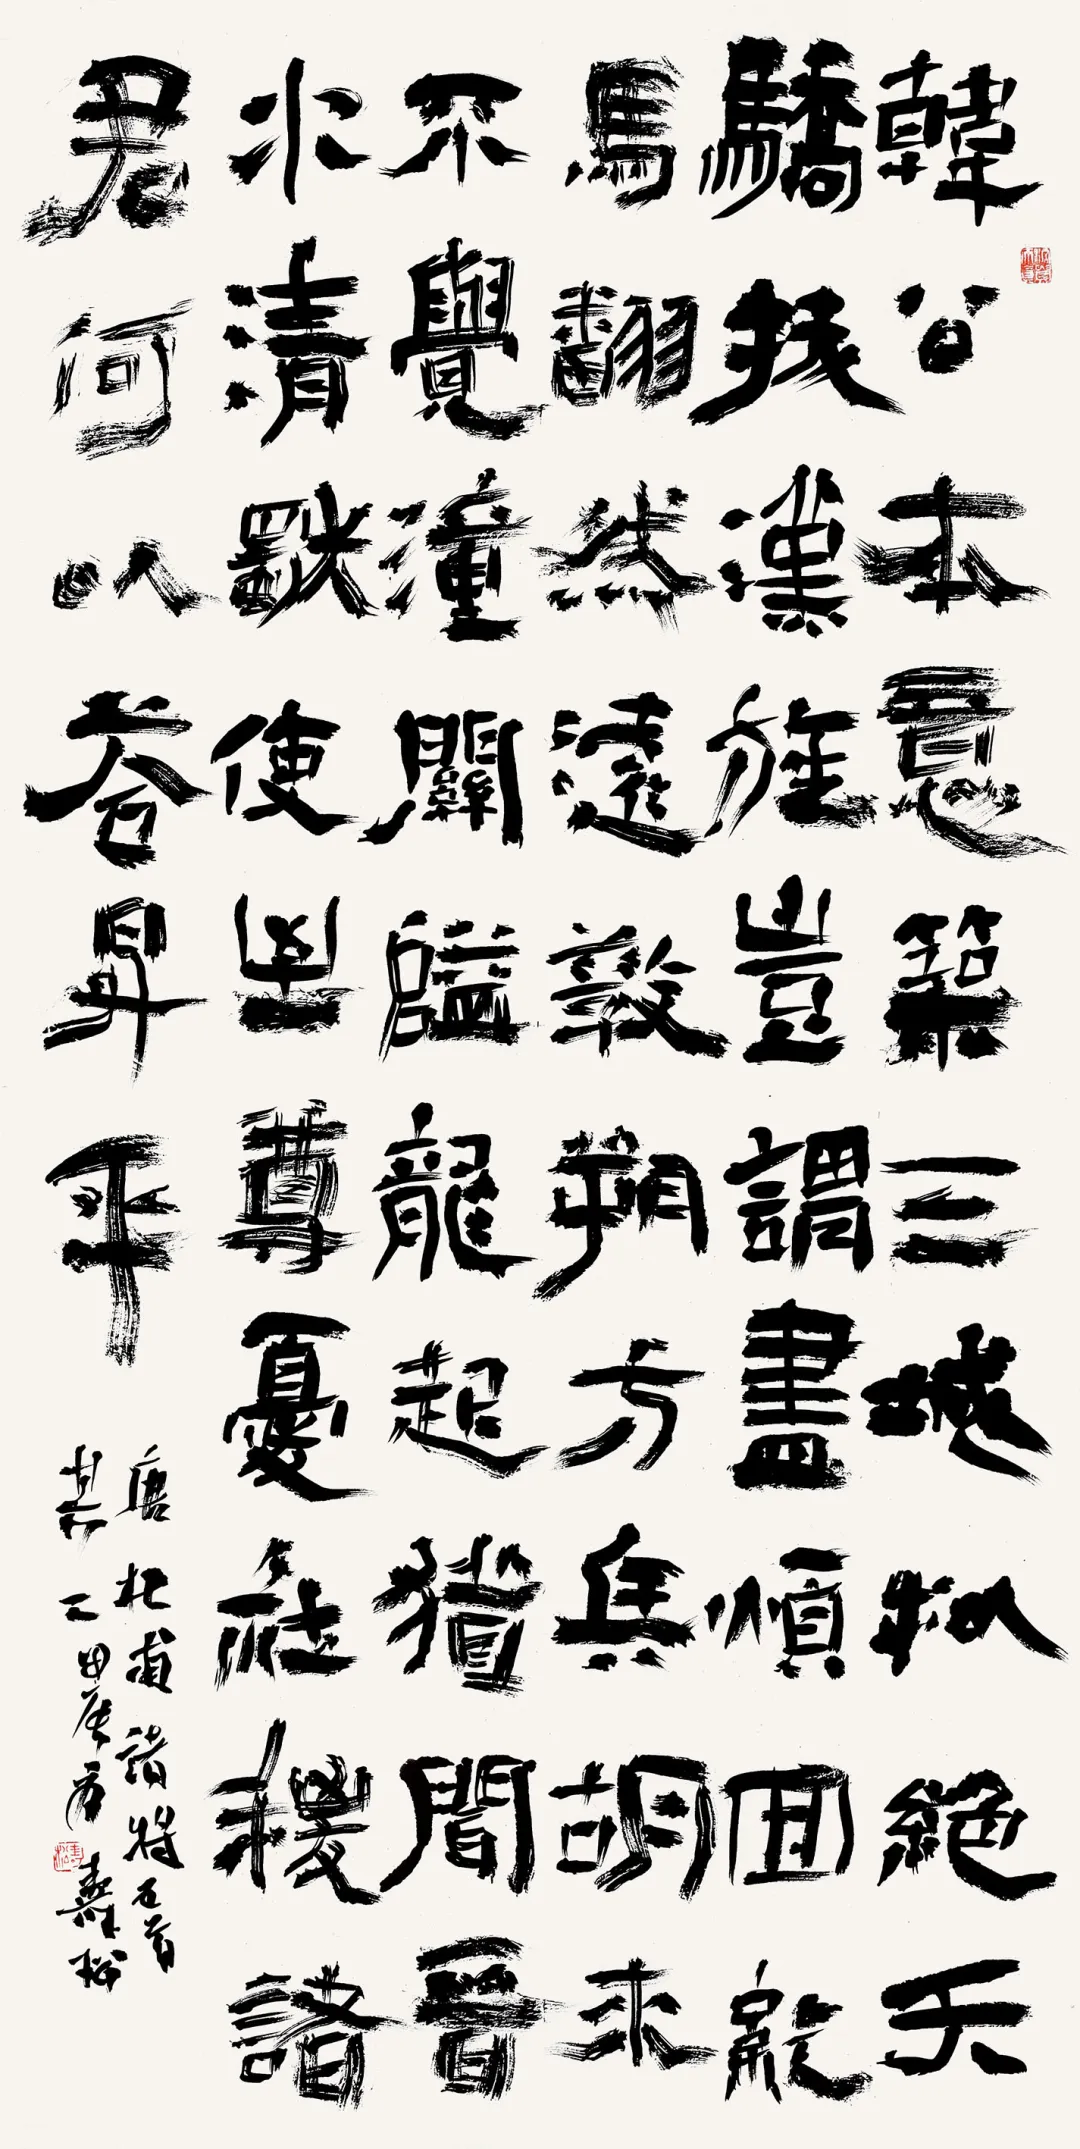 韓公本意築三城拟絕天
驕拔漢旌豈謂盡煩囬紇
馬翻然遠救朔方兵胡來
不覺潼關隘龍起猶聞晉
水清獨使至尊憂社稷諸
君何以荅昇平
唐杜甫諸將五首
其二甲辰